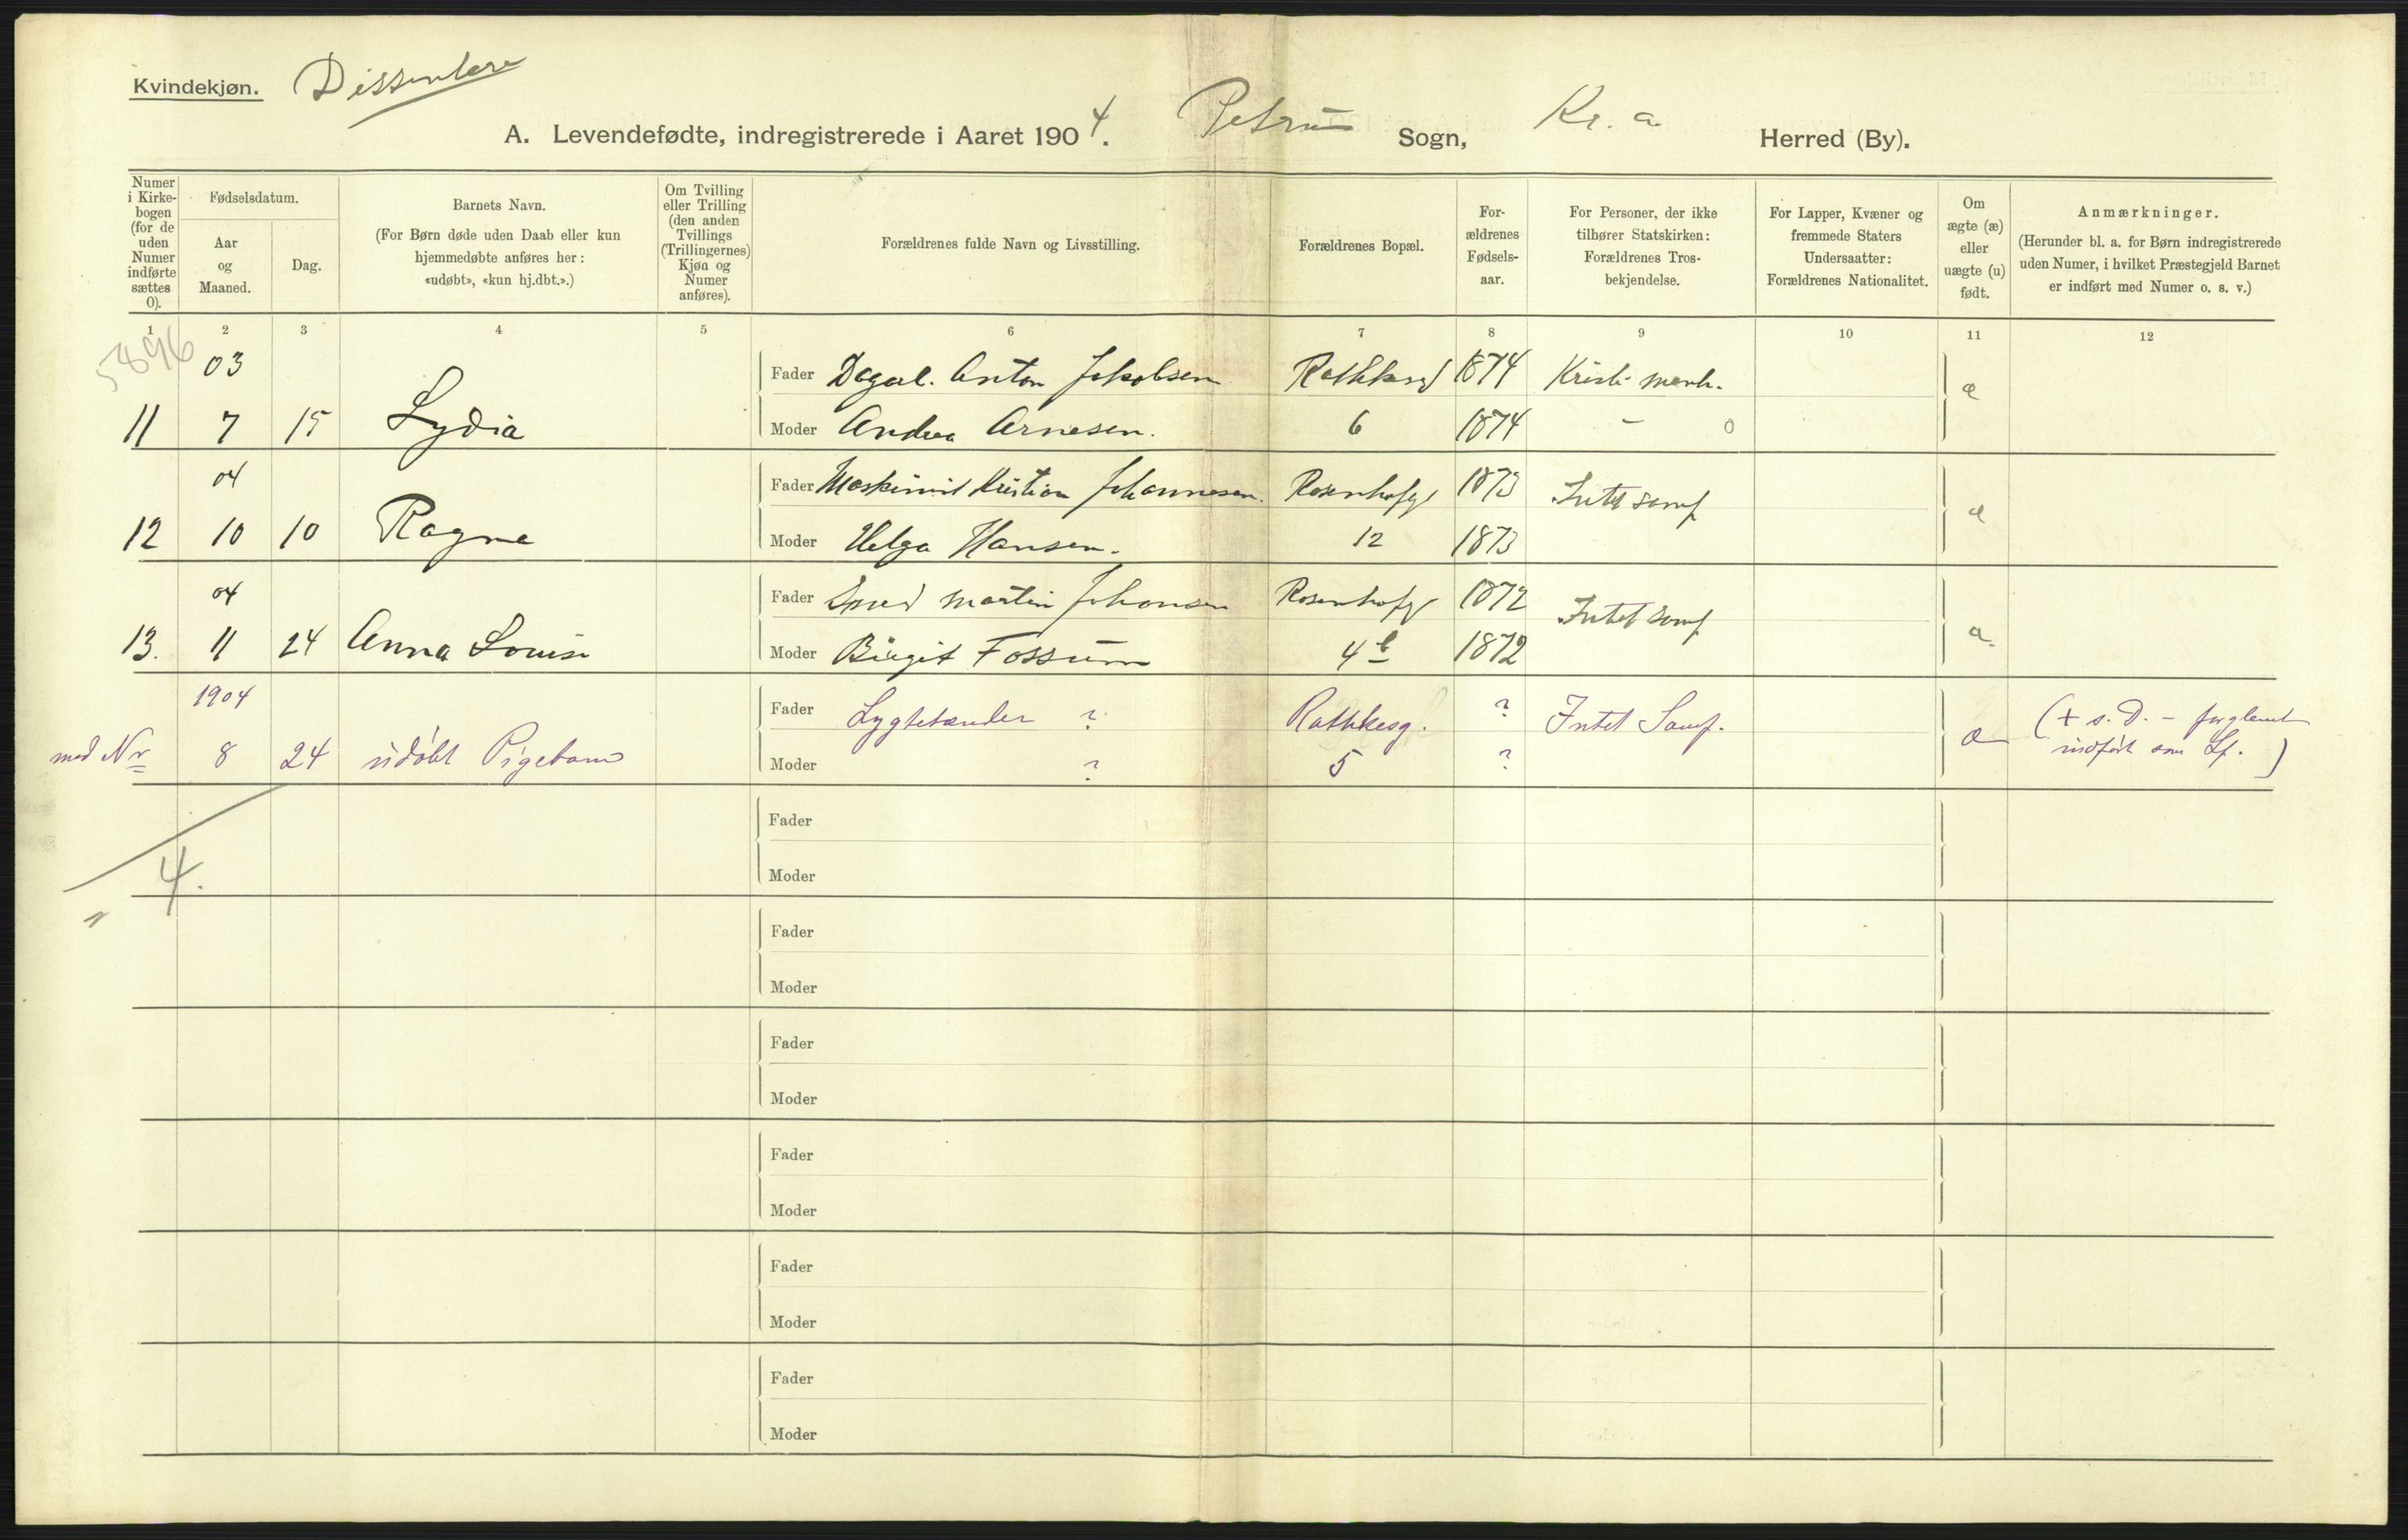 Kvindekjøn. Dissentere
A. Levendefødte, indregistrerede i Aaret 1904. Petrus Sogn, Kr. a Herred (By).
Numer i Kirkebogen (for de uden Numer indførte sættes 0).
Fødselsdatum.
Aar og Maaned.
Dag.
Barnets Navn.
(For Børn døde uden Daab eller kun hjemmedøbte anføres her: «udøbt», «kun hj.dbt.».)
Om Tvilling eller Trilling (den anden Tvillings (Trillingernes) Kjøn og Numer anføres).
Forældrenes fulde Navn og Livsstilling.
Forældrenes Bopæl.
Forældrenes Fødselsaar.
For Personer, der ikke tilhører Statskirken: Forældrenes Trosbekjendelse.
For Lapper, Kvæner og fremmede Staters Undersaatter: Forældrenes Nationalitet.
Om ægte (æ) eller uægte (u) født.
Anmærkninger.
(Herunder bl. a. for Børn indregistrerede uden Numer, i hvilket Præstegjeld Barnet er indført med Numer o. s. v.)
1 2 3 4 5 6 7 8 9 10 11 12
5896
03 Fader Dagarb. Anton Jakobsen 1874 Kristi menh.
11 7 15 Lydia Moder Andrea Arnesen. 6 1874 - 0 æ
04 Fader Kristian Johannesen. Rosenhofg 1873 Intet samf
12 10 10 Ragna Moder Helga Hansen. 12 1873 æ
04 Fader Smed Martin Johansen Rosenhofg 1872 Intet samf
13. 11 24 Anna Louise Moder Birgit Fossum 4b 1872 æ
1904 Fader Lygtetænder ? Rathkesg. ? Intet Samf. († s. D. - forglemt
med Nr 8 24 udøbt Pigebarn Moder ? 5 ? æ indført som Lf.)
Fader
4. Moder
Fader
Moder
Fader
Moder
Fader
Moder
Fader
Moder
Fader
Moder